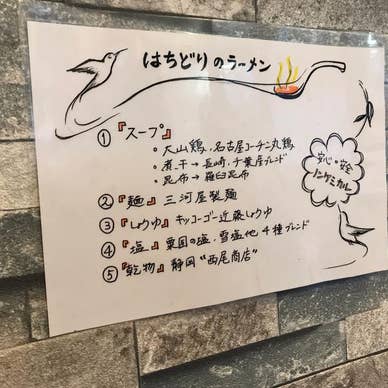 はちどりのラーメン
①『スープ』
・大山鶏、名古屋コーチン丸鶏
・煮干→長崎、千葉産ブレンド
・昆布→羅臼昆布
②『麺』三河屋製麺
③『しょうゆ』キッコーゴー近藤しょうゆ
④『塩』粟国の塩、雪塩他4種ブレンド
⑤『乾物』静岡"西尾商店"
安心・安全
ノンケミカル